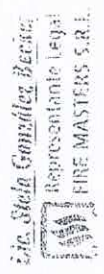 Lic. Stela González Becker
Representante Legal
FIRE MASTERS S.R.L.